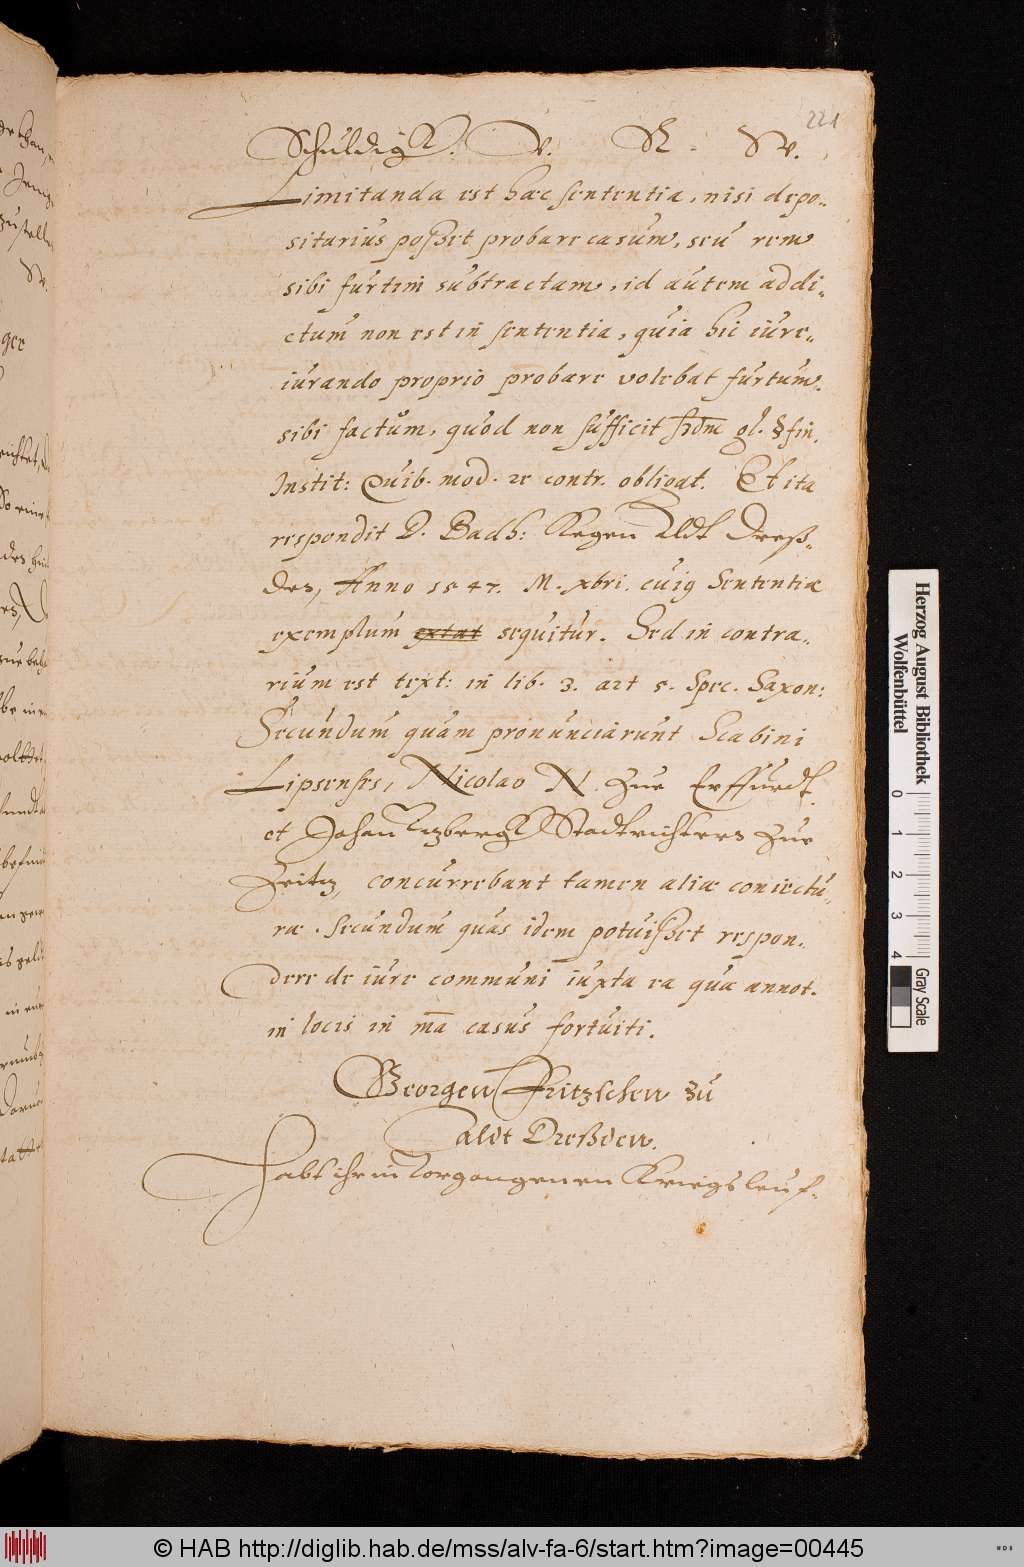 221
Schuldigk. V. R. W.
Limitanda est haec sententia, nisi depo-
sitarius posset probare casum, seu rem
sibi furtim subtractam, id autem addi-
ctum non est in sententia, quia hic iure-
iurando proprio probare volebat furtum
sibi factum, quod non sufficit scdm gl. § fin.
Instit: Quib. mod. re contr. obligat. Et ita
respondit D. Bach: Kegen Aldt Dreß-
den, Anno 1547. M. xbri. cuig Sententiae
exemplum extat sequitur. Sed in contra-
rium est text: in lib. 3. art 5. Spec. Saxon:
Secundum quam pronunciarunt Scabini
Lipsenses, Nicolao N. zue Erffurdt
et Johan Stadtrichtern zue
Zeitz, concurrebant tamen aliae coniectu-
rae. secundum quas idem potuisset respon-
dere de iure communi iuxta ea quae annot.
in locis in ma casus fortuiti.
Georgen Fritzschen zu
aldt Dreßden.
Habt ihr in vorgangenen Kriegsleuf-
Herzog August Bibliothek
Wolfenbüttel
0 1 2 3 4
Gray Scale
© HAB http://diglib.hab.de/mss/alv-fa-6/start.htm?image=00445